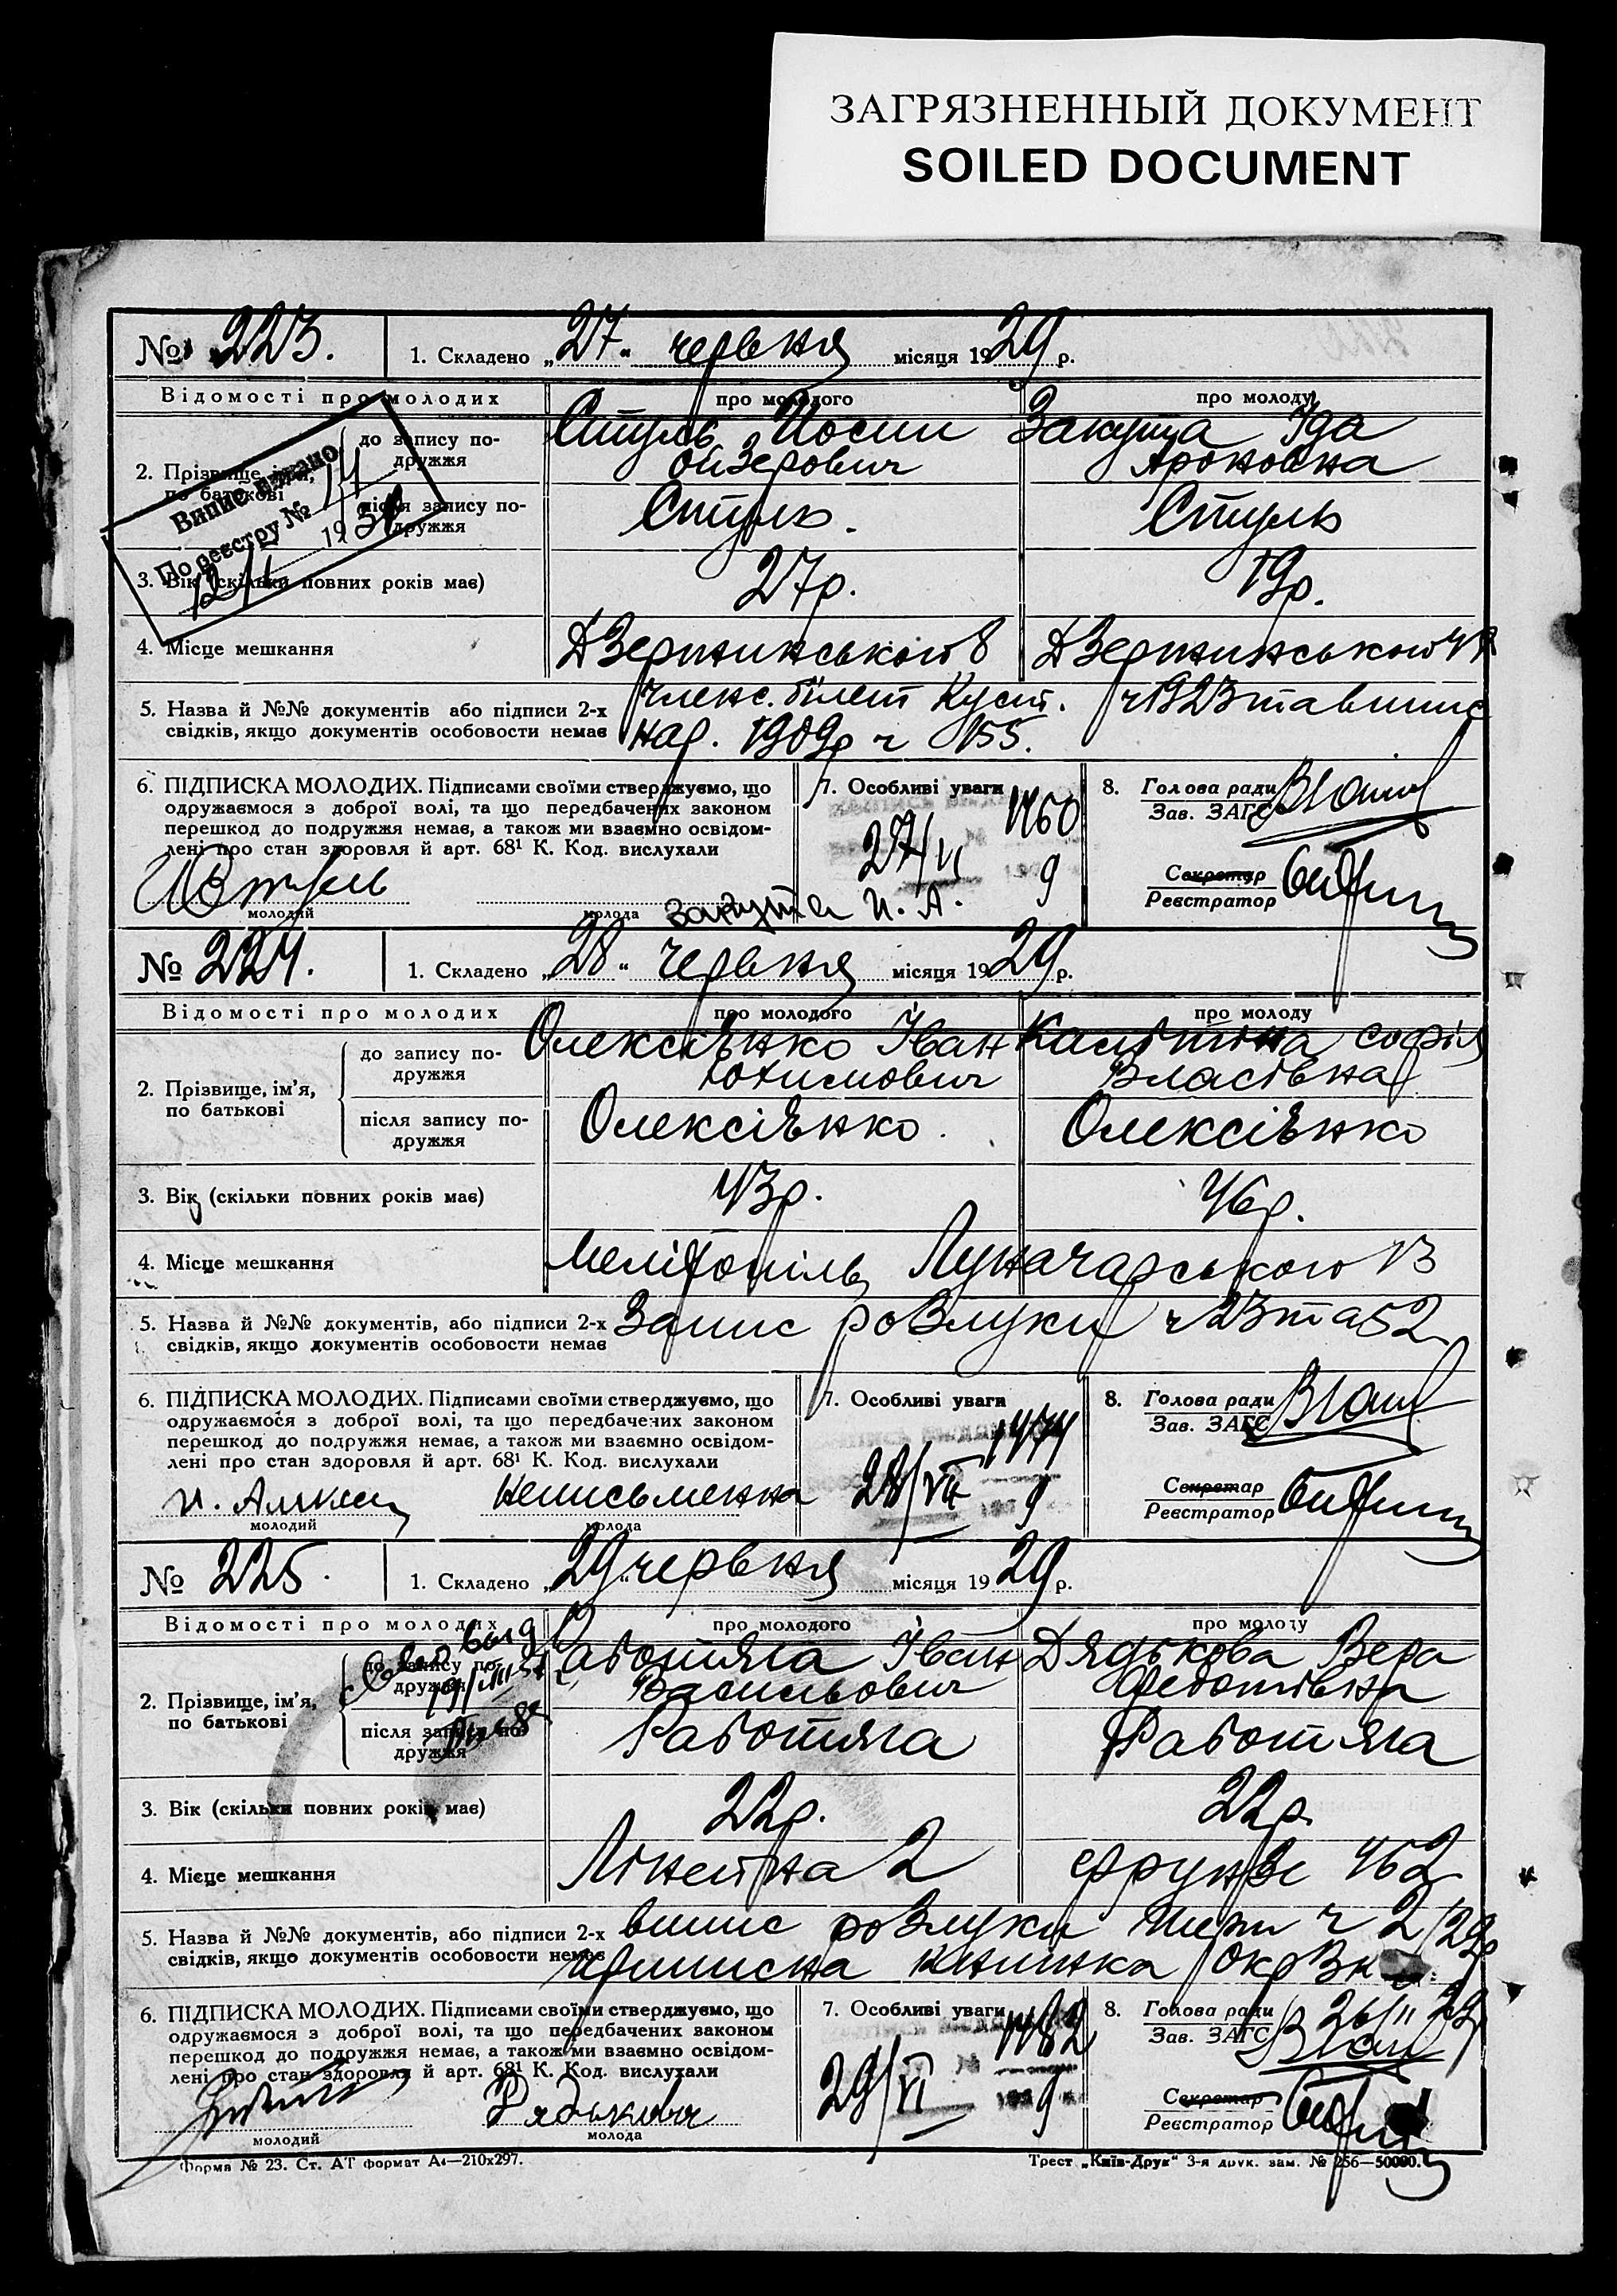 ЗАГРЯЗНЕННЫЙ ДОКУМЕНТ
SOILED DOCUMENT
№ 223. 1. Складено „27“ червня місяця 1929 р.
Відомості про молодих про молодого про молоду
2. Прізвище, ім'я, по батькові
до запису подружжя
Стуль Йосип Закута Іда
Ойзерович Ароновна
після запису подружжя
Стуль. Стуль
Випис видано
По реєстру №
19
3. Вік (скільки повних років має) 27р. 19р.
4. Місце мешкання Дзержинського 8 Дзержинського
5. Назва й №№ документів або підписи 2-х членс. білет Куст. ч 1923 та випис
свідків, якщо документів особовости немає нар. 1909р ч 155.
6. ПІДПИСКА МОЛОДИХ. Підписами своїми стверджуємо, що
одружаємося з доброї волі, та що передбачених законом
перешкод до подружжя немає, а також ми взаємно освідом-
лені про стан здоров'я й арт. 68¹ К. Код. вислухали
молодий молода Закута И. А.
7. Особливі уваги
27/VI 9
8. Голова ради
Зав. ЗАГС
Секретар
Реєстратор
№ 224. 1. Складено „28“ червня місяця 1929 р.
Відомості про молодих про молодого про молоду
2. Прізвище, ім'я,
по батькові
до запису по-
дружжя
Олексієнко Іван Софія
Юхимович Власівна
після запису по-
дружжя
Олексієнко. Олексієнко
3. Вік (скільки повних років має) 43р. 46р.
4. Місце мешкання Мелітопіль, Луначарського 13
5. Назва й №№ документів, або підписи 2-х Запис розлуки ч 23 та 52
свідків, якщо документів особовости немає
6. ПІДПИСКА МОЛОДИХ. Підписами своїми стверджуємо, що
одружаємося з доброї волі, та що передбачених законом
перешкод до подружжя немає, а також ми взаємно освідом-
лені про стан здоровля й арт. 68¹ К. Код. вислухали
неписьменна
молодий молода
7. Особливі уваги
1474
9
8. Голова ради
Зав. ЗАГС
Секретар
Реєстратор
№ 225. 1. Складено „29“ червня місяця 1929 р.
Відомості про молодих про молодого про молоду
2. Прізвище, ім'я,
по батькові
до запису по-
дружжя
Работяга Іван Дядькова Вера
Васильович Федотівна
після запису по-
дружжя
Работяга Работяга
3. Вік (скільки повних років має) 22р. 22р.
4. Місце мешкання Лінейна 2 Фрунзе 462
5. Назва й №№ документів, або підписи 2-х випис розлуки ч 2/29р
свідків, якщо документів особовости немає приписна книжка
6. ПІДПИСКА МОЛОДИХ. Підписами своїми стверджуємо, що
одружаємося з доброї волі, та що передбачених законом
перешкод до подружжя немає, а також ми взаємно освідом-
лені про стан здоровля й арт. 68¹ К. Код. вислухали
молодий молода
7. Особливі уваги
1482
29/VI 9
8. Голова ради 26/II 29
Зав. ЗАГС
Секретар
Реєстратор
Форма № 23. Ст. АТ формат А4—210х297. Трест „Київ-Друк“ 3-я друк. зам. № 256—50000.